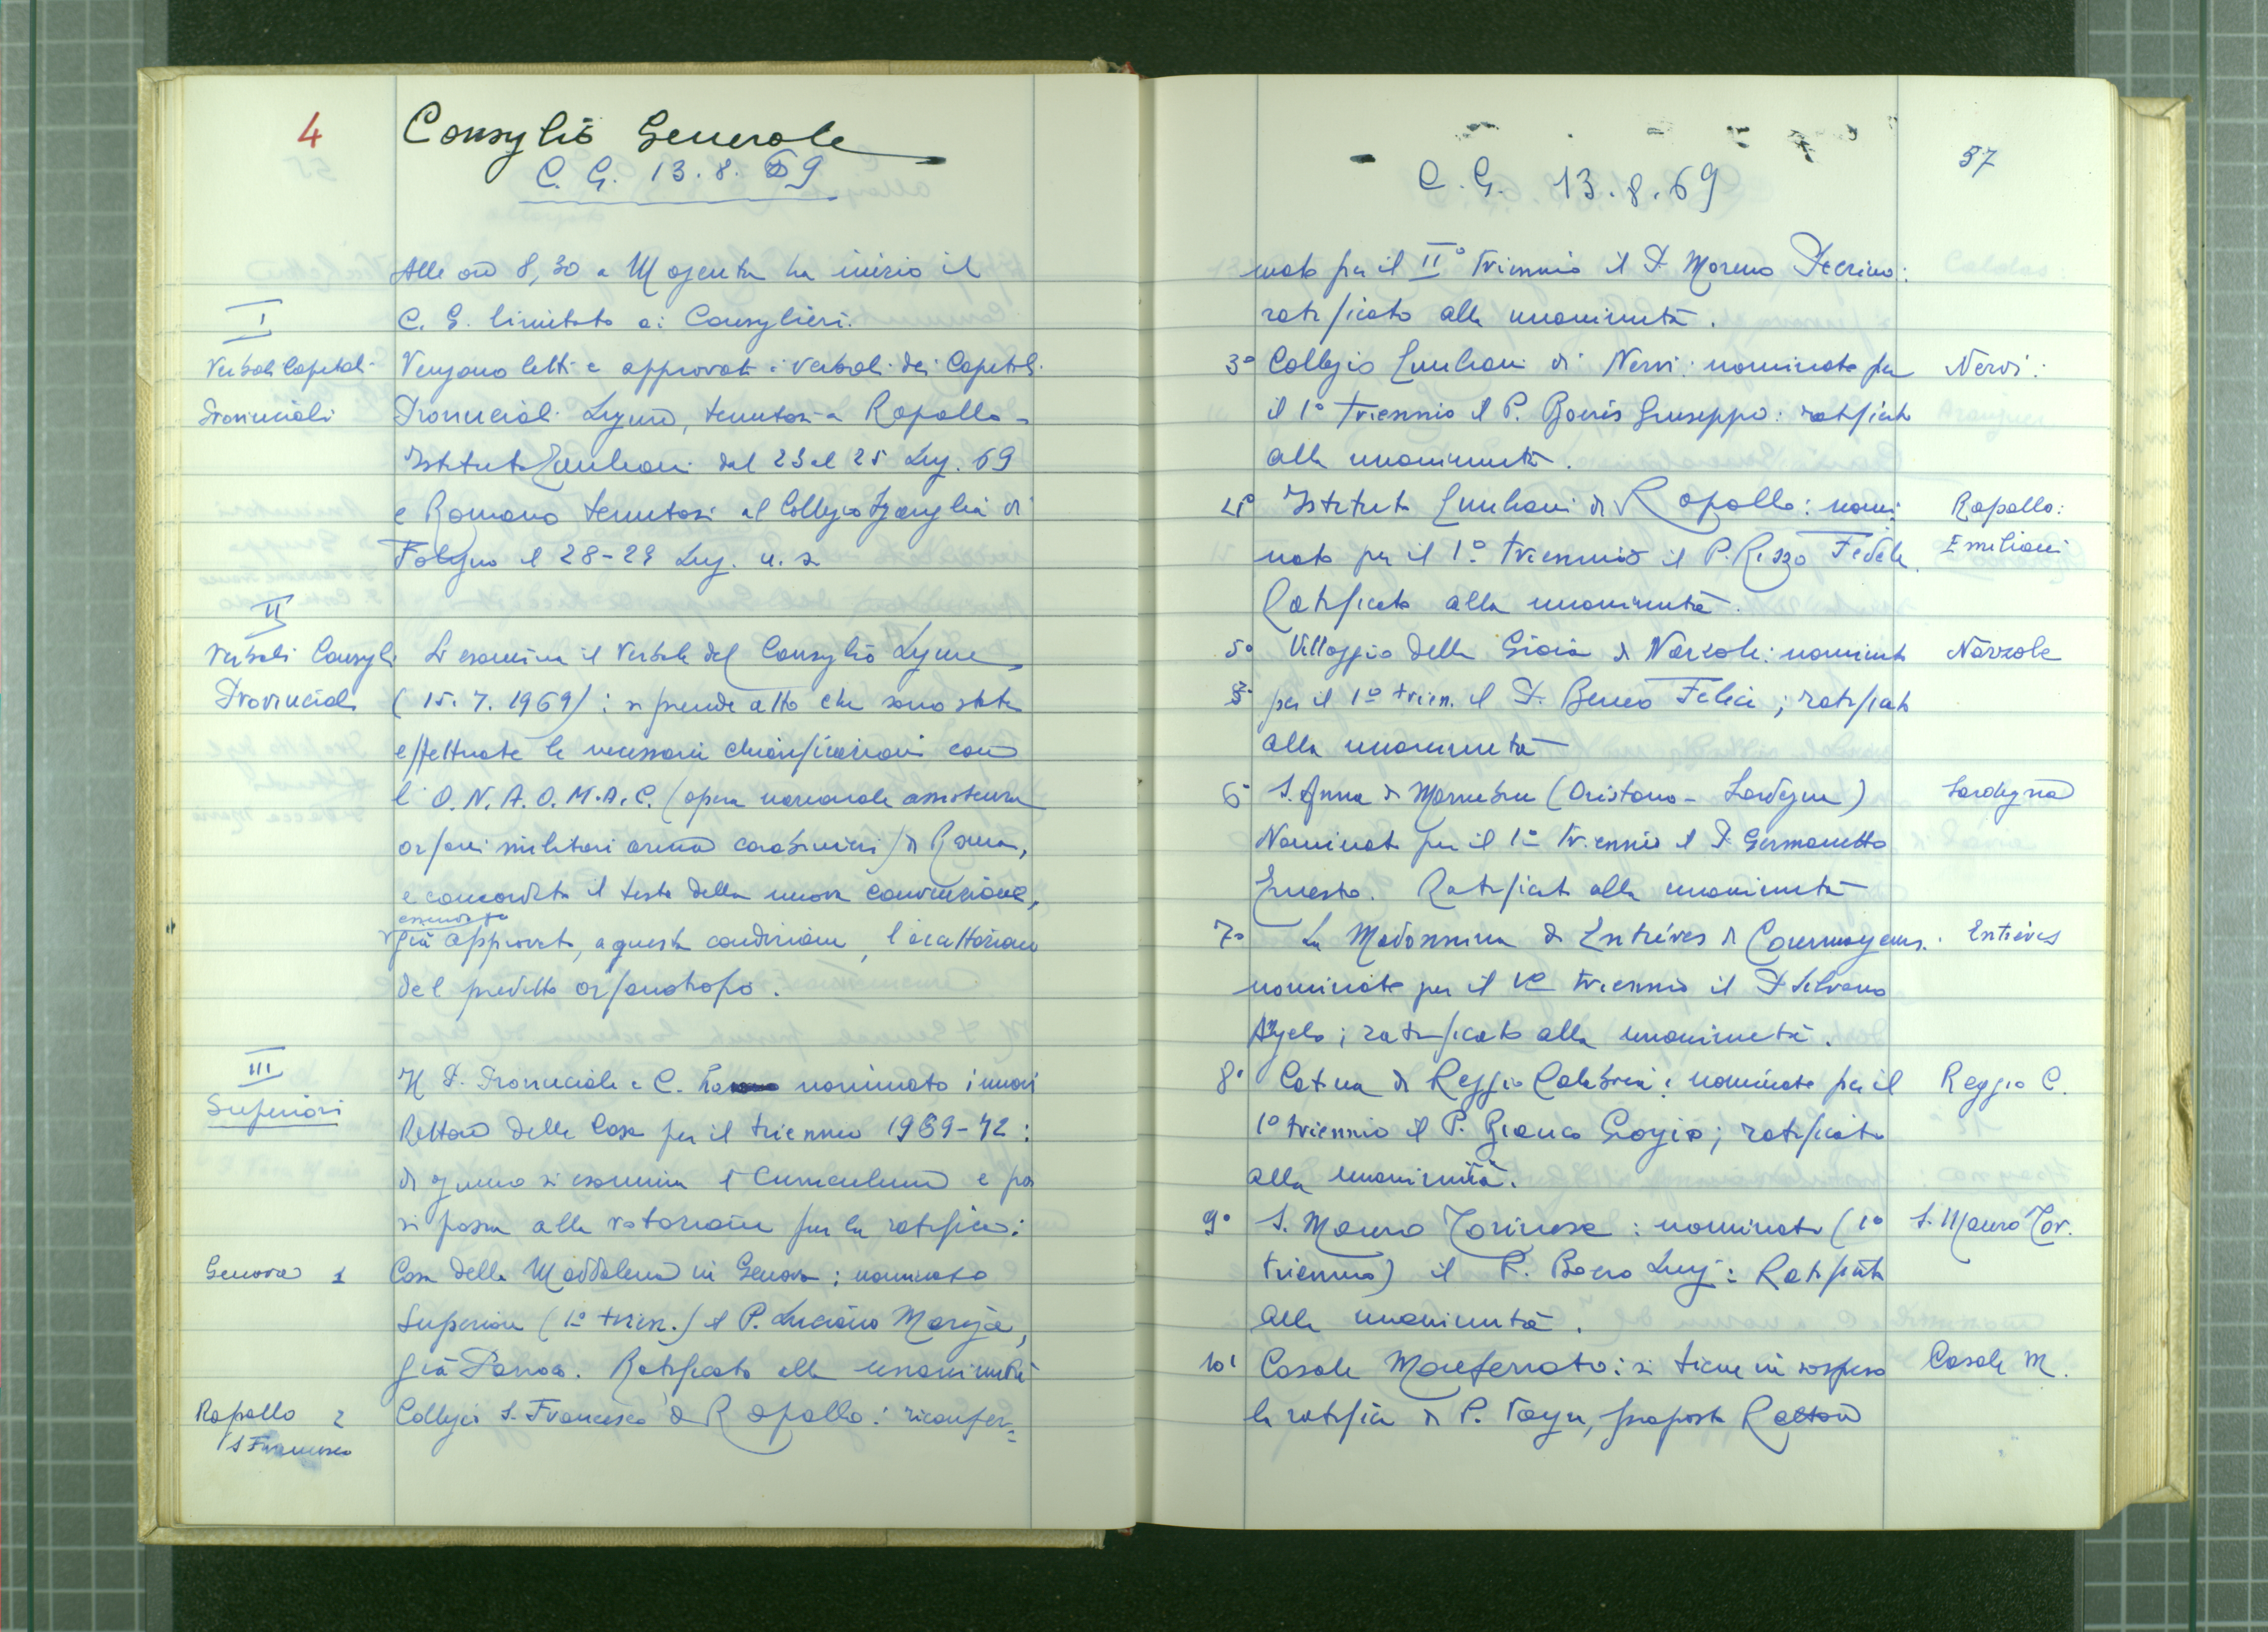 4
Consiglio Generale
C. G. 13.8.69
Alle ore 8,30 a Magenta ha inizio il
I
C. G. limitato ai Consiglieri.
Verbali Capitoli
Vengono letti e approvati i verbali dei Capitoli
Provinciali
Provinciali Ligure, tenutosi a Rapallo -
Istituto Emiliani dal 23 al 25 Lug. 69
e Romano tenutosi al Collegio Sgariglia di
Foligno il 28-29 Lug. u. s.
II
Verbali Consigli
Si esamina il Verbale del Consiglio Ligure
Provinciali
(15.7.1969): si prende atto che sono state
effettuate le necessarie chiarificazioni con
l'O.N.A.O.M.A.C. (opera nazionale assistenza
orfani militari arma carabinieri) di Roma,
e concordato il testo della nuova convenzione,
essendo
già approvata, a queste condizioni, l'accettazione
del predetto orfanotrofio.
III
Superiori
Il P. Provinciale e C. ha nominato i nuovi
Rettori delle Case per il triennio 1969-72:
di ognuno si esamina il Curriculum e poi
si passa alla votazione per la ratifica:
Genova 1
Casa della Maddalena in Genova; nominato
Superiore (1° trien.) il P. Luciano Mariga,
già Parroco. Ratificato alla unanimità
Rapallo 2
S Francesco
Collegio S. Francesco di Rapallo: riconfer=
57
C. G. 13.8.69
mato per il II° triennio il P. Moreno Pierino:
ratificato alla unanimità.
3° Collegio Emiliani di Nervi: nominato per
Nervi:
il 1° triennio il P. Boeris Giuseppe: ratificato
alla unanimità.
4° Istituto Emiliani di Rapallo: nomi
Rapallo:
Emiliani
nato per il 1° triennio il P. Rizzo Fedele.
Ratificato alla unanimità.
5° Villaggio della Gioia di Narzole: nominato
Narzole
per il 1° trien. il P. Beneo Felice; ratificato
alla unanimità
6° S. Anna di Marrubiu (Oristano - Sardegna)
Sardegna
Nominato per il 1° triennio il P. Germanetto
Ernesto. Ratificato alla unanimità
7° La Madonnina di Entrèves di Courmayeur.
Entrèves
nominato per il 1° triennio il P. Silvano
Angelo; ratificato alla unanimità.
8° Catona di Reggio Calabria: nominato per il
Reggio C.
1° triennio il P. Bianco Giorgio; ratificato
alla unanimità.
9° S. Mauro Torinese: nominato (1°
S. Mauro Tor.
triennio) il P. Boero Luigi: Ratificato
alla unanimità.
10° Casale Monferrato: si tiene in sospeso
Casale M.
la ratifica di P. proposto Rettore